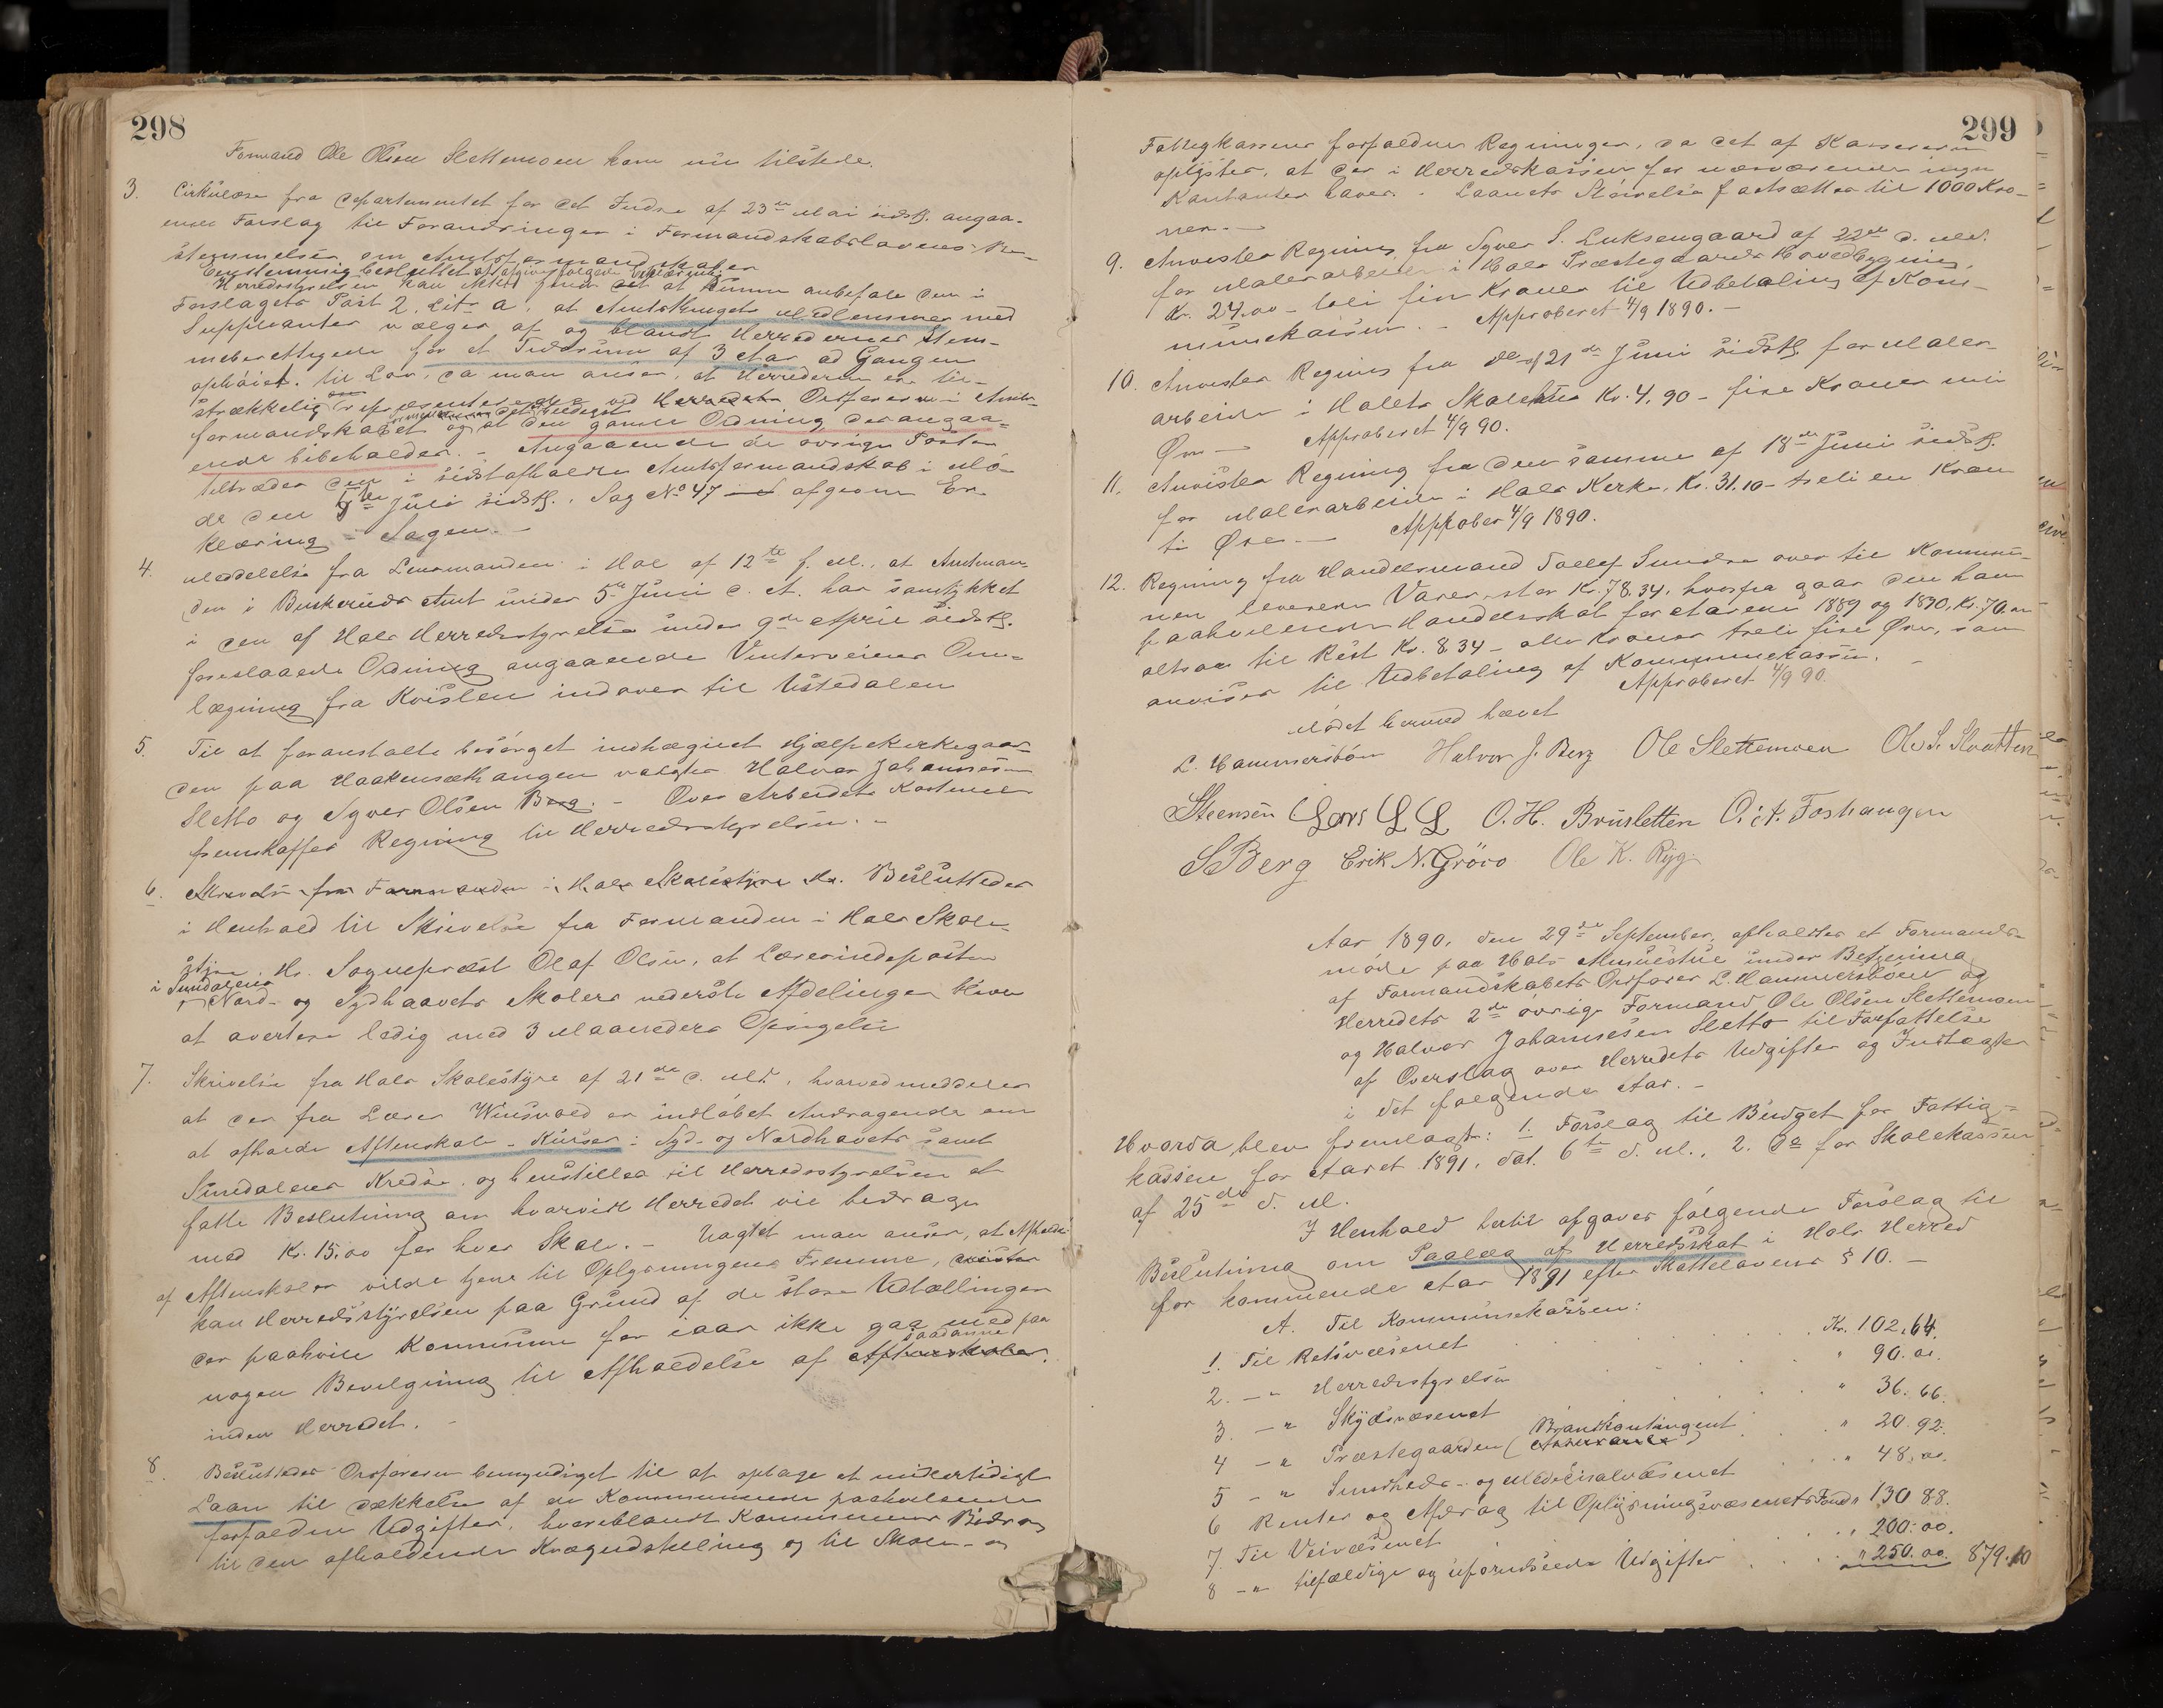 298
Formand Ole Olsen Slettemoen kom nu tilstede.
3. Cirkulære fra Departementet for det Indre af 23de Mai sidstl. angaa-
ende Forslag til Forandringer i Formandskabslovens Be-
stemmelser om Amtsformandskaber
Eenstemmig besluttet at afgive følgende Erklæring:
Herredsstyrelsen kan ikke finde det at kunne anbefale den i
Forslagets Post 2, Litr a, at Amtsthingets Medlemmer med
Suppleanter vælges af og blandt Herredernes Stem-
meberettigede for et Tidsrum af 3 Aar ad Gangen
ophøiet til Lov, da man anser, at Herrederne ere til-
strækkelig repræsenterede ved Herredets Ordførere i Amts-
formandskabet og at den gamle Ordning derangaa-
ende bibeholdes. - Angaaende de øvrige Poster
tiltrædes den i sidstafholdte Amtsformandskab i Mø-
de den Juli sidstl., Sag No 47 afgivne Er-
klæring - Sagen. -
4. Meddelelse fra Lensmanden i Hol af 12te f. M., at Amtman-
den i Buskeruds Amt under 5te Juni d. A. har samtykket
i den af Hols Herredsstyrelse under 9de April sidstl.
foreslaaede Ordning angaaende Vinterveiens Om-
lægning fra Kvislen indover til Ustedalen
5. Til at foranstalte besørget indhegnet Hjælpekirkegaar-
den paa Haakensæthaugen valgtes Halvor Johannesen
Sletto og Syver Olsen Berg. - Over Arbeidets Kostende
fremskaffes Regning til Herredsstyrelsen. -
6. Skrivelse fra Formanden i Hols Skolestyre Hr. Besluttedes
i Henhold til Skrivelse fra Formanden i Hols Skole-
styre, Hr. Sogneprest Olaf Olsen, at Lærerindeposten
i Sundalens
Nord- og Sydhaavets Skolers nederste Afdelinger bliver
at avertere ledig med 3 Maaneders Opsigelse
7. Skrivelse fra Hols Skolestyre af 21de d. Md., hvorved meddeles
at der fra Lærer Winsvold er indløbet Andragende om
at afholde Aftenskole-Kurser i Syd- og Nordhavets samt
Sundalens Kredse, og henstilles til Herredsstyrelsen at
fatte Beslutning om hvorvidt Herredet vil bidrage
med Kr. 15,00 for hver Skole. - Uagtet man anser, at Afholdel-
af Aftenskoler vilde tjene til Oplysningens Fremme,
kan Herredsstyrelsen paa Grund af de store Udtællinger
der paahvile Kommunen for iaar ikke gaa med paa
nogen Bevilgning til Afholdelse af saadanne Aftenskoler
inden Herredet. -
8. Besluttedes Ordføreren bemyndiget til at optage et midlertidigt
Laan til dækkelse af de Kommunen paahvilende
forfaldne Udgifter, hvoriblandt Kommunens Bidrag
til den afholdende Kvægudstilling og til Skole- og
299
Fattigkassens forfaldne Regninger, da det af Kassereren
oplystes, at der i Herredskassen for nærværende ingen
Kontanter haves. - Laanets Størrelse fastsættes til 1000 Kro-
ner. -
9. Anvistes Regning fra Syver S. Luksengaard af 22de d. Md.
for Malerarbeide i Hols Præstegaards Hovedbygning,
Kr. 24.00 - toti fire Kroner til Udbetaling af Kom-
munekassen. - Approberet 4/9 1890. -
10. Anvistes Regning fra af 21de Juni sidstl. for Maler-
arbeide i Holets Skole Kr. 4,90 - fire Kroner niti
Øre - Approberet 4/9 90.
11. Anvistes Regning fra den samme af 18de Juni sidstl.
for Malerarbeide i Hols Kirke, Kr. 31.10 - treti en Kroner
ti Øre. - Approber 4/9 1890.
12. Regning fra Handelsmand Tollef Sundre over til Kommu-
nen leverede Varer, stor Kr. 78,34, hvorfra gaar den ham
paahvilende Handelsskat for Aarene 1889 og 1890, Kr. 70.00
altsaa til Rest Kr. 8,34 - otte Kroner treti fire Øre, som
anvises til Udbetaling af Kommunekassen. -
Approberet 4/9 90.
Mødet hermed hævet
L. Hammersbøen Halvor J. Berg Ole Slettemoen Ole S. Slaatten
Steensen Lars L L O. H. Brusletten O. A. Foshaugen
S Berg Erik N. Gröво Ole K. Ryg
Aar 1890, den 29de September, afholdtes et Formands-
møde paa Hols Almuestue under Betjening
af Formandskabets Ordfører L. Hammersbøen og
Herredets 2de øvrige Formænd Ole Olsen Slettemoen
og Halvor Johannesen Sletto til Forfattelse
af Overslag over Herredets Udgifter og Indtægter
i det følgende Aar. -
Hvorda blev fremlagt: 1. Forslag til Budget for Fattig-
kassen for Aaret 1891, dat. 6te d. M., 2. Do for Skolekassen
af 25de d. M.
I Henhold hertil afgaves følgende Forslag til
Beslutning om Paalæg af Herredsskat i Hols Herred
for kommende Aar 1891 efter Skattelovens § 10. -
A. Til Kommunekassen:
1. Til Retsvæsenet Kr. 102,64.
2. - " Herredsstyrelsen " 90.00.
3. - " Skydsvæsenet " 36.66.
4 - " Præstegaarden (Brandkontingent) " 20.92.
5 - " Sundheds- og Medicinalvæsenet " 48,00.
6 Renter og Afdrag til Oplysningsvæsenets Fond " 130 88.
7. Til Veivæsenet " 200.00.
8 - " tilfældige og uforudseede Udgifter " 250.00. 879.10